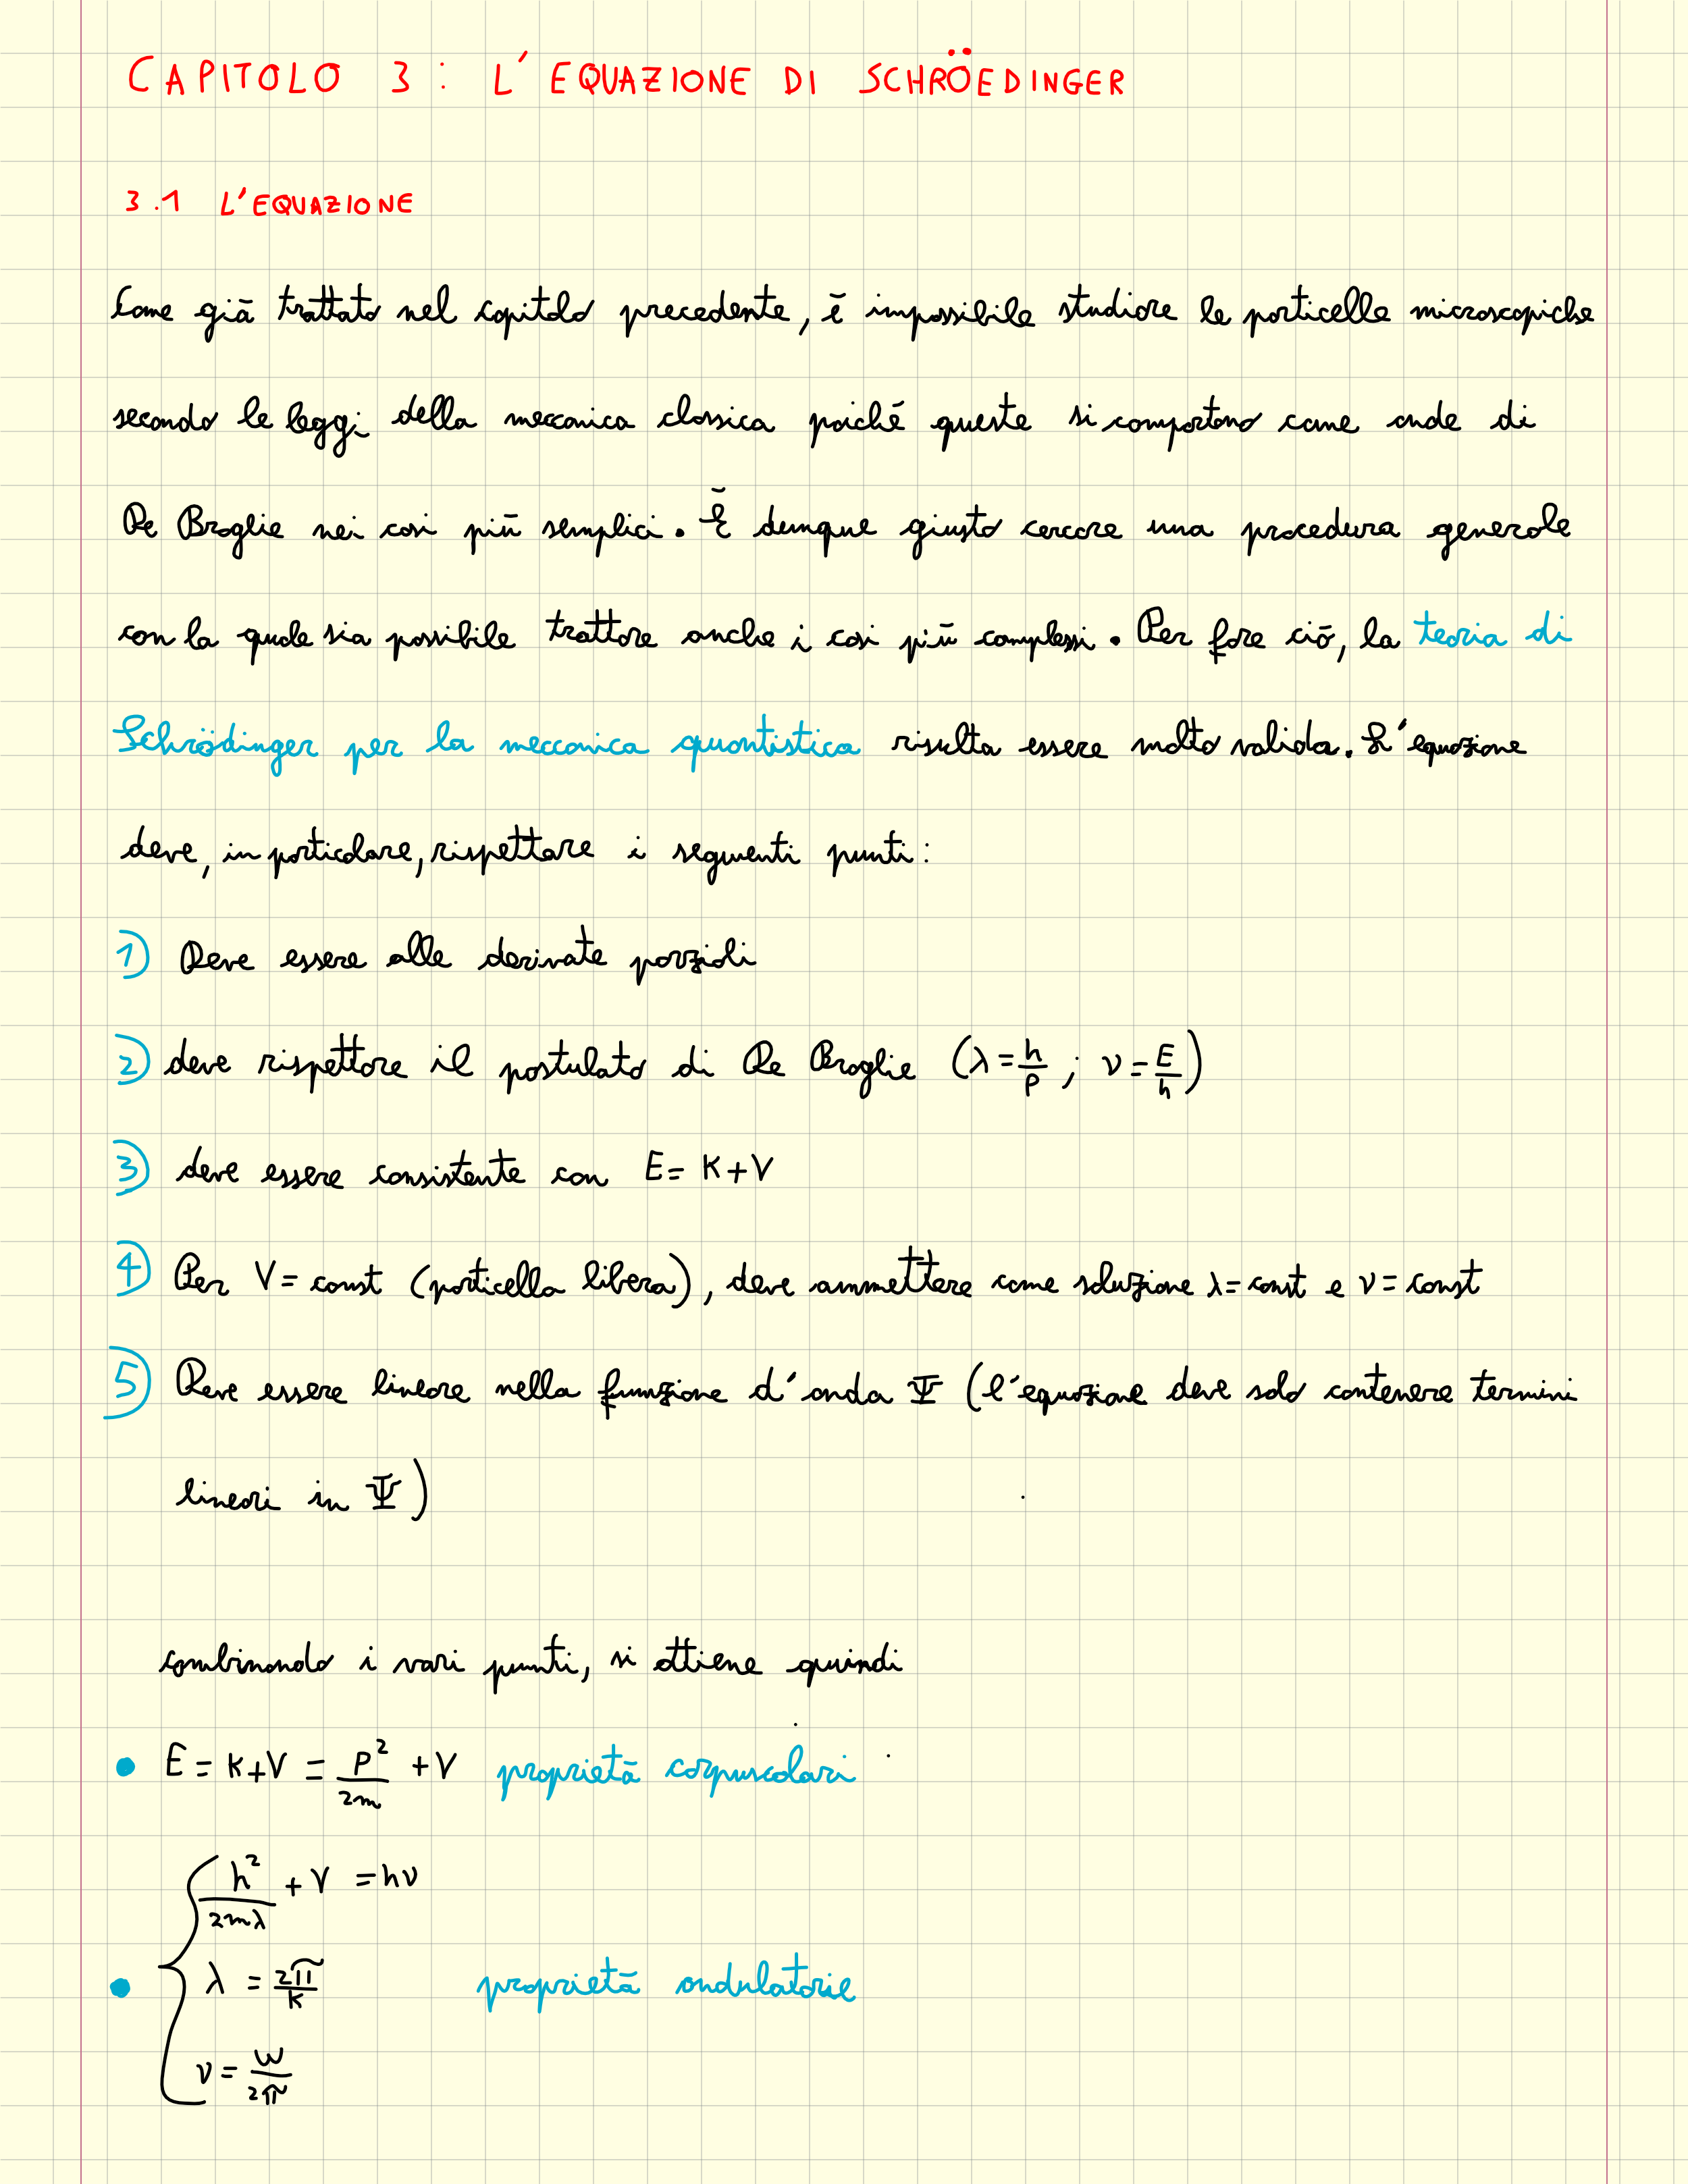 CAPITOLO 3 : L'EQUAZIONE DI SCHRÖEDINGER
3.1 L'EQUAZIONE
Come già trattato nel capitolo precedente, è impossibile studiare le particelle microscopiche
secondo le leggi della meccanica classica poiché queste si comportano come onde di
De Broglie nei casi più semplici. È dunque giusto cercare una procedura generale
con la quale sia possibile trattare anche i casi più complessi. Per fare ciò, la teoria di
Schrödinger per la meccanica quantistica risulta essere molto valida. L'equazione
deve, in particolare, rispettare i seguenti punti:
1) Deve essere alle derivate parziali
2) deve rispettare il postulato di De Broglie (λ = h/p ; ν = E/h)
3) deve essere consistente con E = K+V
4) Per V = const (particella libera), deve ammettere come soluzione λ = const e ν = const
5) Deve essere lineare nella funzione d'onda Ψ (l'equazione deve solo contenere termini
lineari in Ψ)
combinando i vari punti, si ottiene quindi
• E = K+V = P²/2m + V proprietà corpuscolari
h²/2mλ + V = hν
• λ = 2π/K proprietà ondulatorie
ν = ω/2π